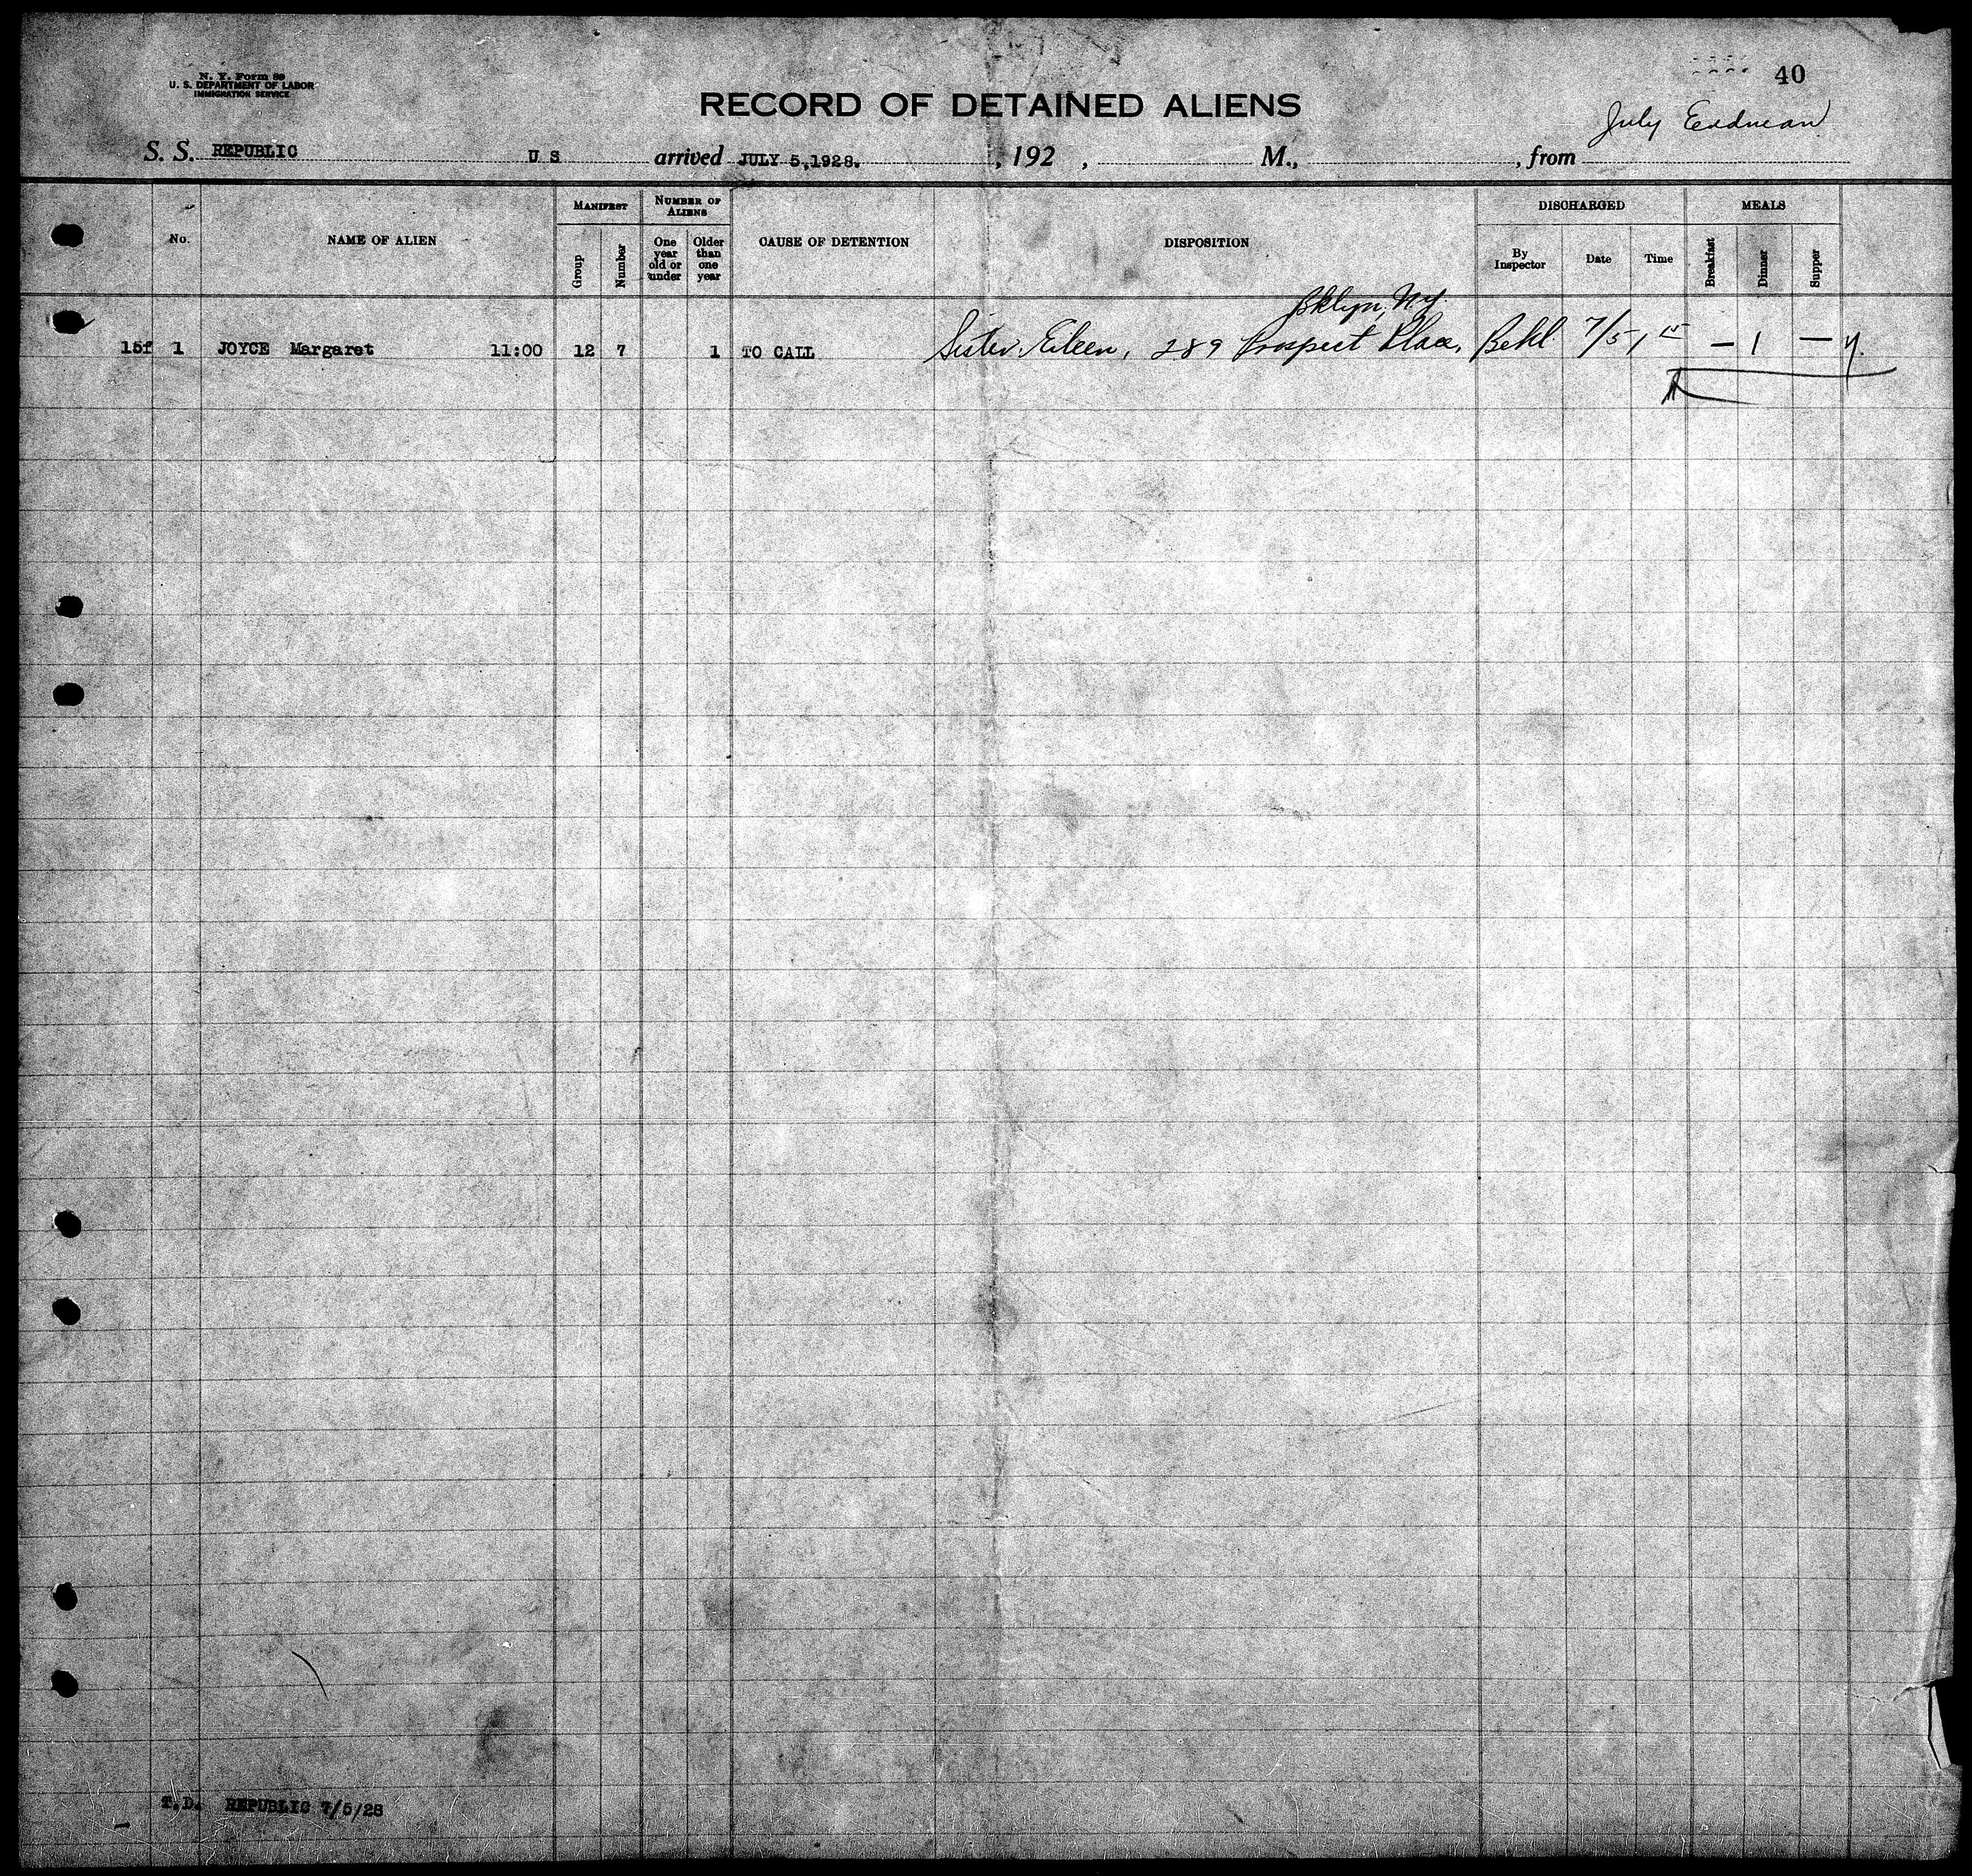 N. Y. Form 89
U. S. DEPARTMENT OF LABOR
IMMIGRATION SERVICE
40
RECORD OF DETAINED ALIENS
July
S. S. REPUBLIC U S arrived JULY 5,1928. , 192 , M., , from
MANIFEST NUMBER OF ALIENS DISCHARGED MEALS
No. NAME OF ALIEN Group Number One year old or under Older than one year CAUSE OF DETENTION DISPOSITION By Inspector Date Time Breakfast Dinner Supper
Bklyn, N.Y.
15f 1 JOYCE Margaret 11:00 12 7 1 TO CALL Sister Eileen, 289 Prospect Place, 7/5 1 15 — 1 —
T.D. REPUBLIC 7/5/28